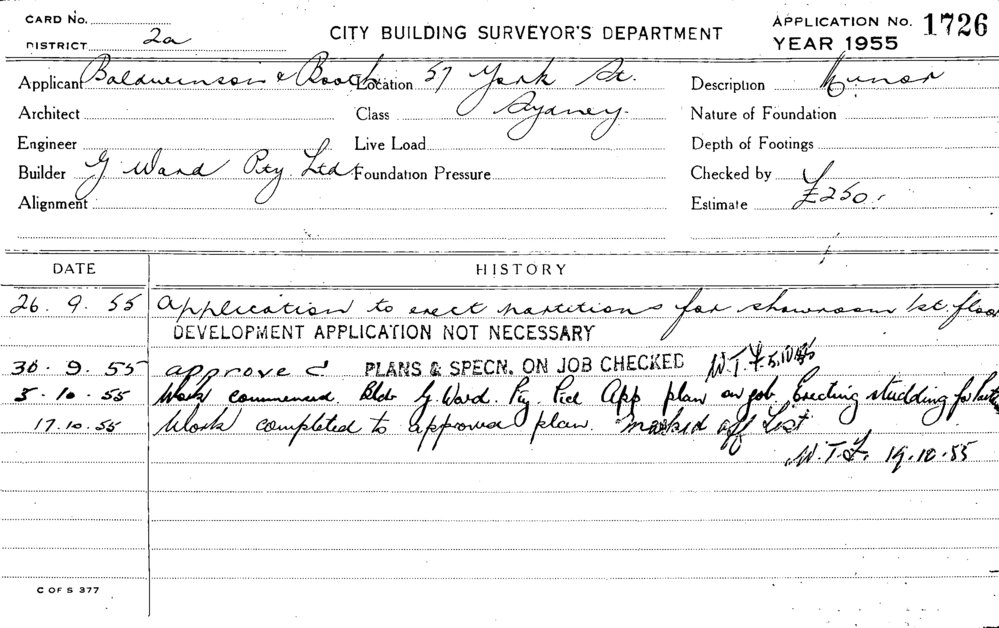 CARD No.
DISTRICT 2a
CITY BUILDING SURVEYOR'S DEPARTMENT
APPLICATION No. 1726
YEAR 1955
Applicant Baldwinson & Booth Location 57 York St. Description Minor
Architect Class Sydney. Nature of Foundation
Engineer Live Load Depth of Footings
Builder G Ward Pty. Ltd Foundation Pressure Checked by
Alignment Estimate £250.
DATE HISTORY
26. 9. 55 Application to erect partitions for showroom 1st. floor
DEVELOPMENT APPLICATION NOT NECESSARY
30. 9. 55 approved PLANS & SPECN. ON JOB CHECKED W.T.F. 5.10.55
5. 10. 55 Work commenced. Bldr G. Ward. App plan on job Erecting studding for
17.10.55 Work completed to approved plan. "marked off List"
W.T.F. 19.10.55
C OF S 377